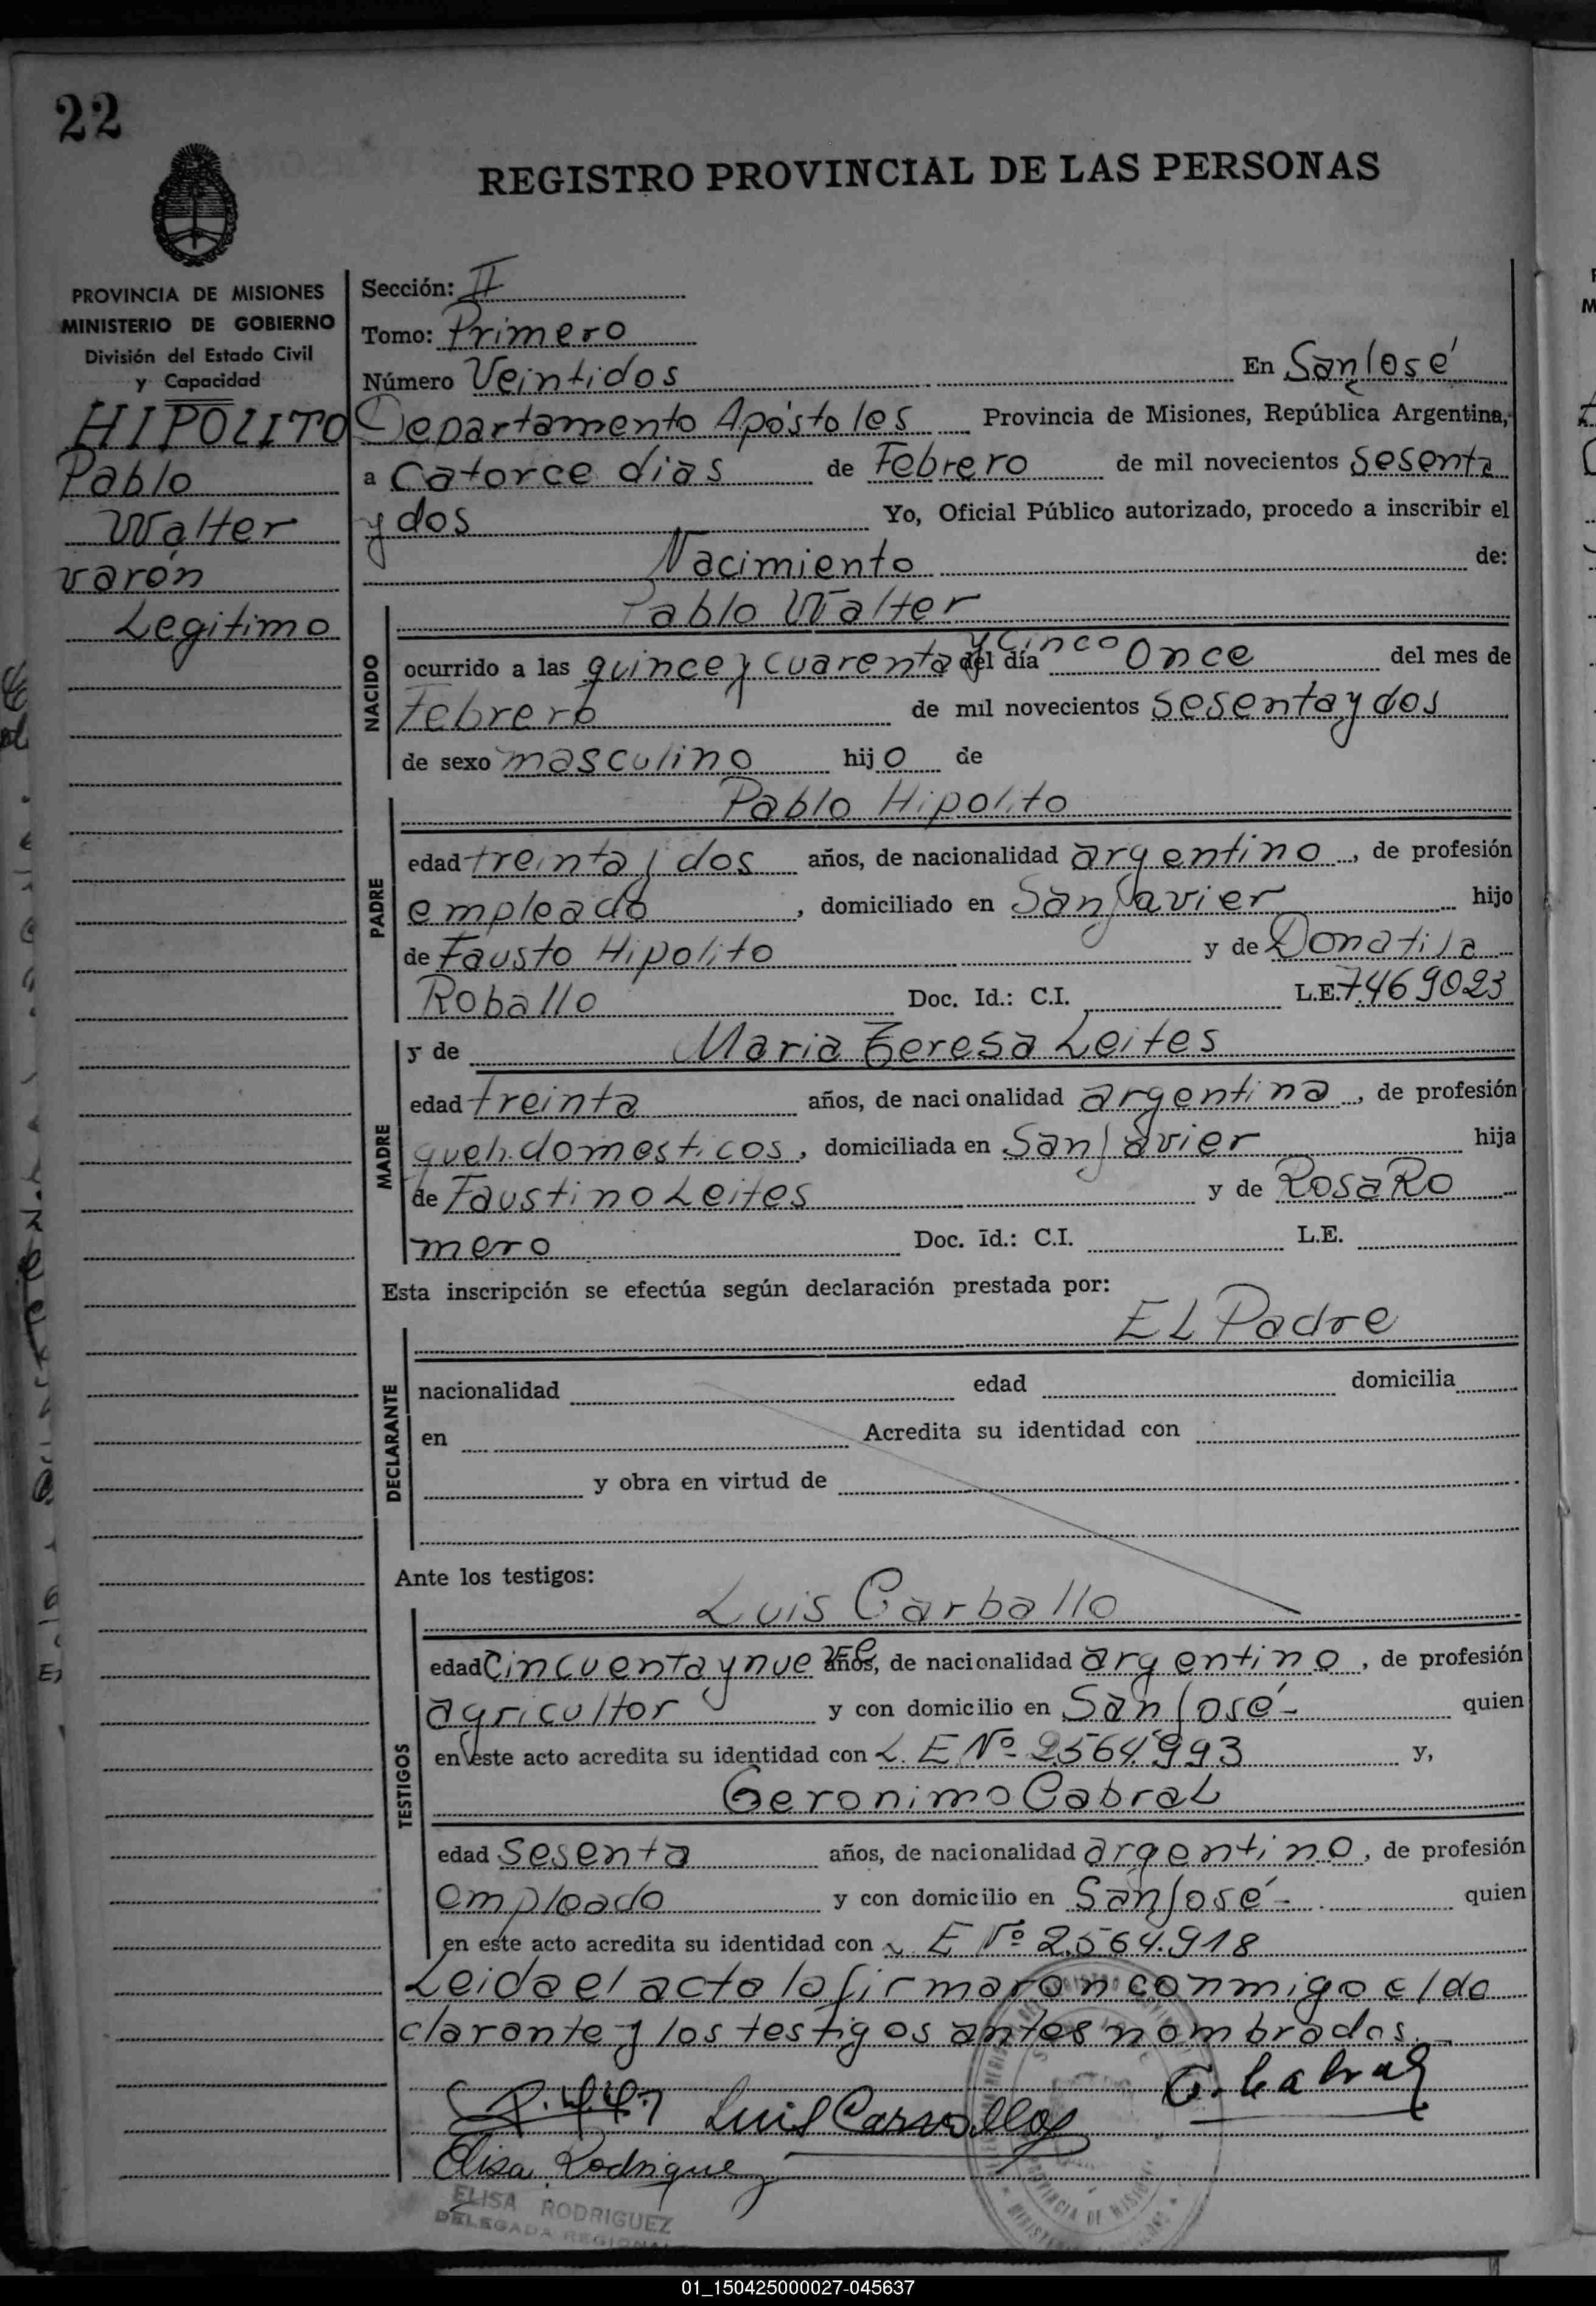 22
REGISTRO PROVINCIAL DE LAS PERSONAS
PROVINCIA DE MISIONES
MINISTERIO DE GOBIERNO
División del Estado Civil
y Capacidad
HIPOLITO
Pablo
Walter
varón
Legitimo
Sección: II
Tomo: Primero
Número Veintidos En San José
Departamento Apóstoles Provincia de Misiones, República Argentina,
a Catorce dias de Febrero de mil novecientos Sesenta
y dos Yo, Oficial Público autorizado, procedo a inscribir el
Nacimiento de:
Pablo Walter
NACIDO
ocurrido a las quince y cuarenta y Cinco del día Once del mes de
Febrero de mil novecientos Sesenta y dos
de sexo masculino hijo de
Pablo Hipolito
PADRE
edad treinta y dos años, de nacionalidad argentino, de profesión
empleado, domiciliado en San Javier hijo
de Fausto Hipolito y de Donatila
Roballo Doc. Id.: C.I. L.E. 7.469023
y de Maria Teresa Leites
MADRE
edad treinta años, de nacionalidad argentina, de profesión
queh. domesticos, domiciliada en San Javier hija
de Faustino Leites y de Rosa Ro
mero Doc. Id.: C.I. L.E.
Esta inscripción se efectúa según declaración prestada por:
EL Padre
DECLARANTE
nacionalidad edad domicilia
en Acredita su identidad con
y obra en virtud de
Ante los testigos:
Luis Carballo
TESTIGOS
edad Cincuenta y nueve años, de nacionalidad argentino, de profesión
agricultor y con domicilio en San José- quien
en este acto acredita su identidad con L. E Nº 2564.993 y,
Geronimo Cabral
edad Sesenta años, de nacionalidad argentino, de profesión
empleado y con domicilio en San José- quien
en este acto acredita su identidad con L E Nº 2.564.918
Leida el acto la firmaron conmigo el de
clarante y los testigos antes nombrados.-
Luis Carvallo G. Cabral
Elisa Rodriguez
ELISA RODRIGUEZ
DELEGADA REGIONAL
PROVINCIA DE MISIONES
01_150425000027-045637